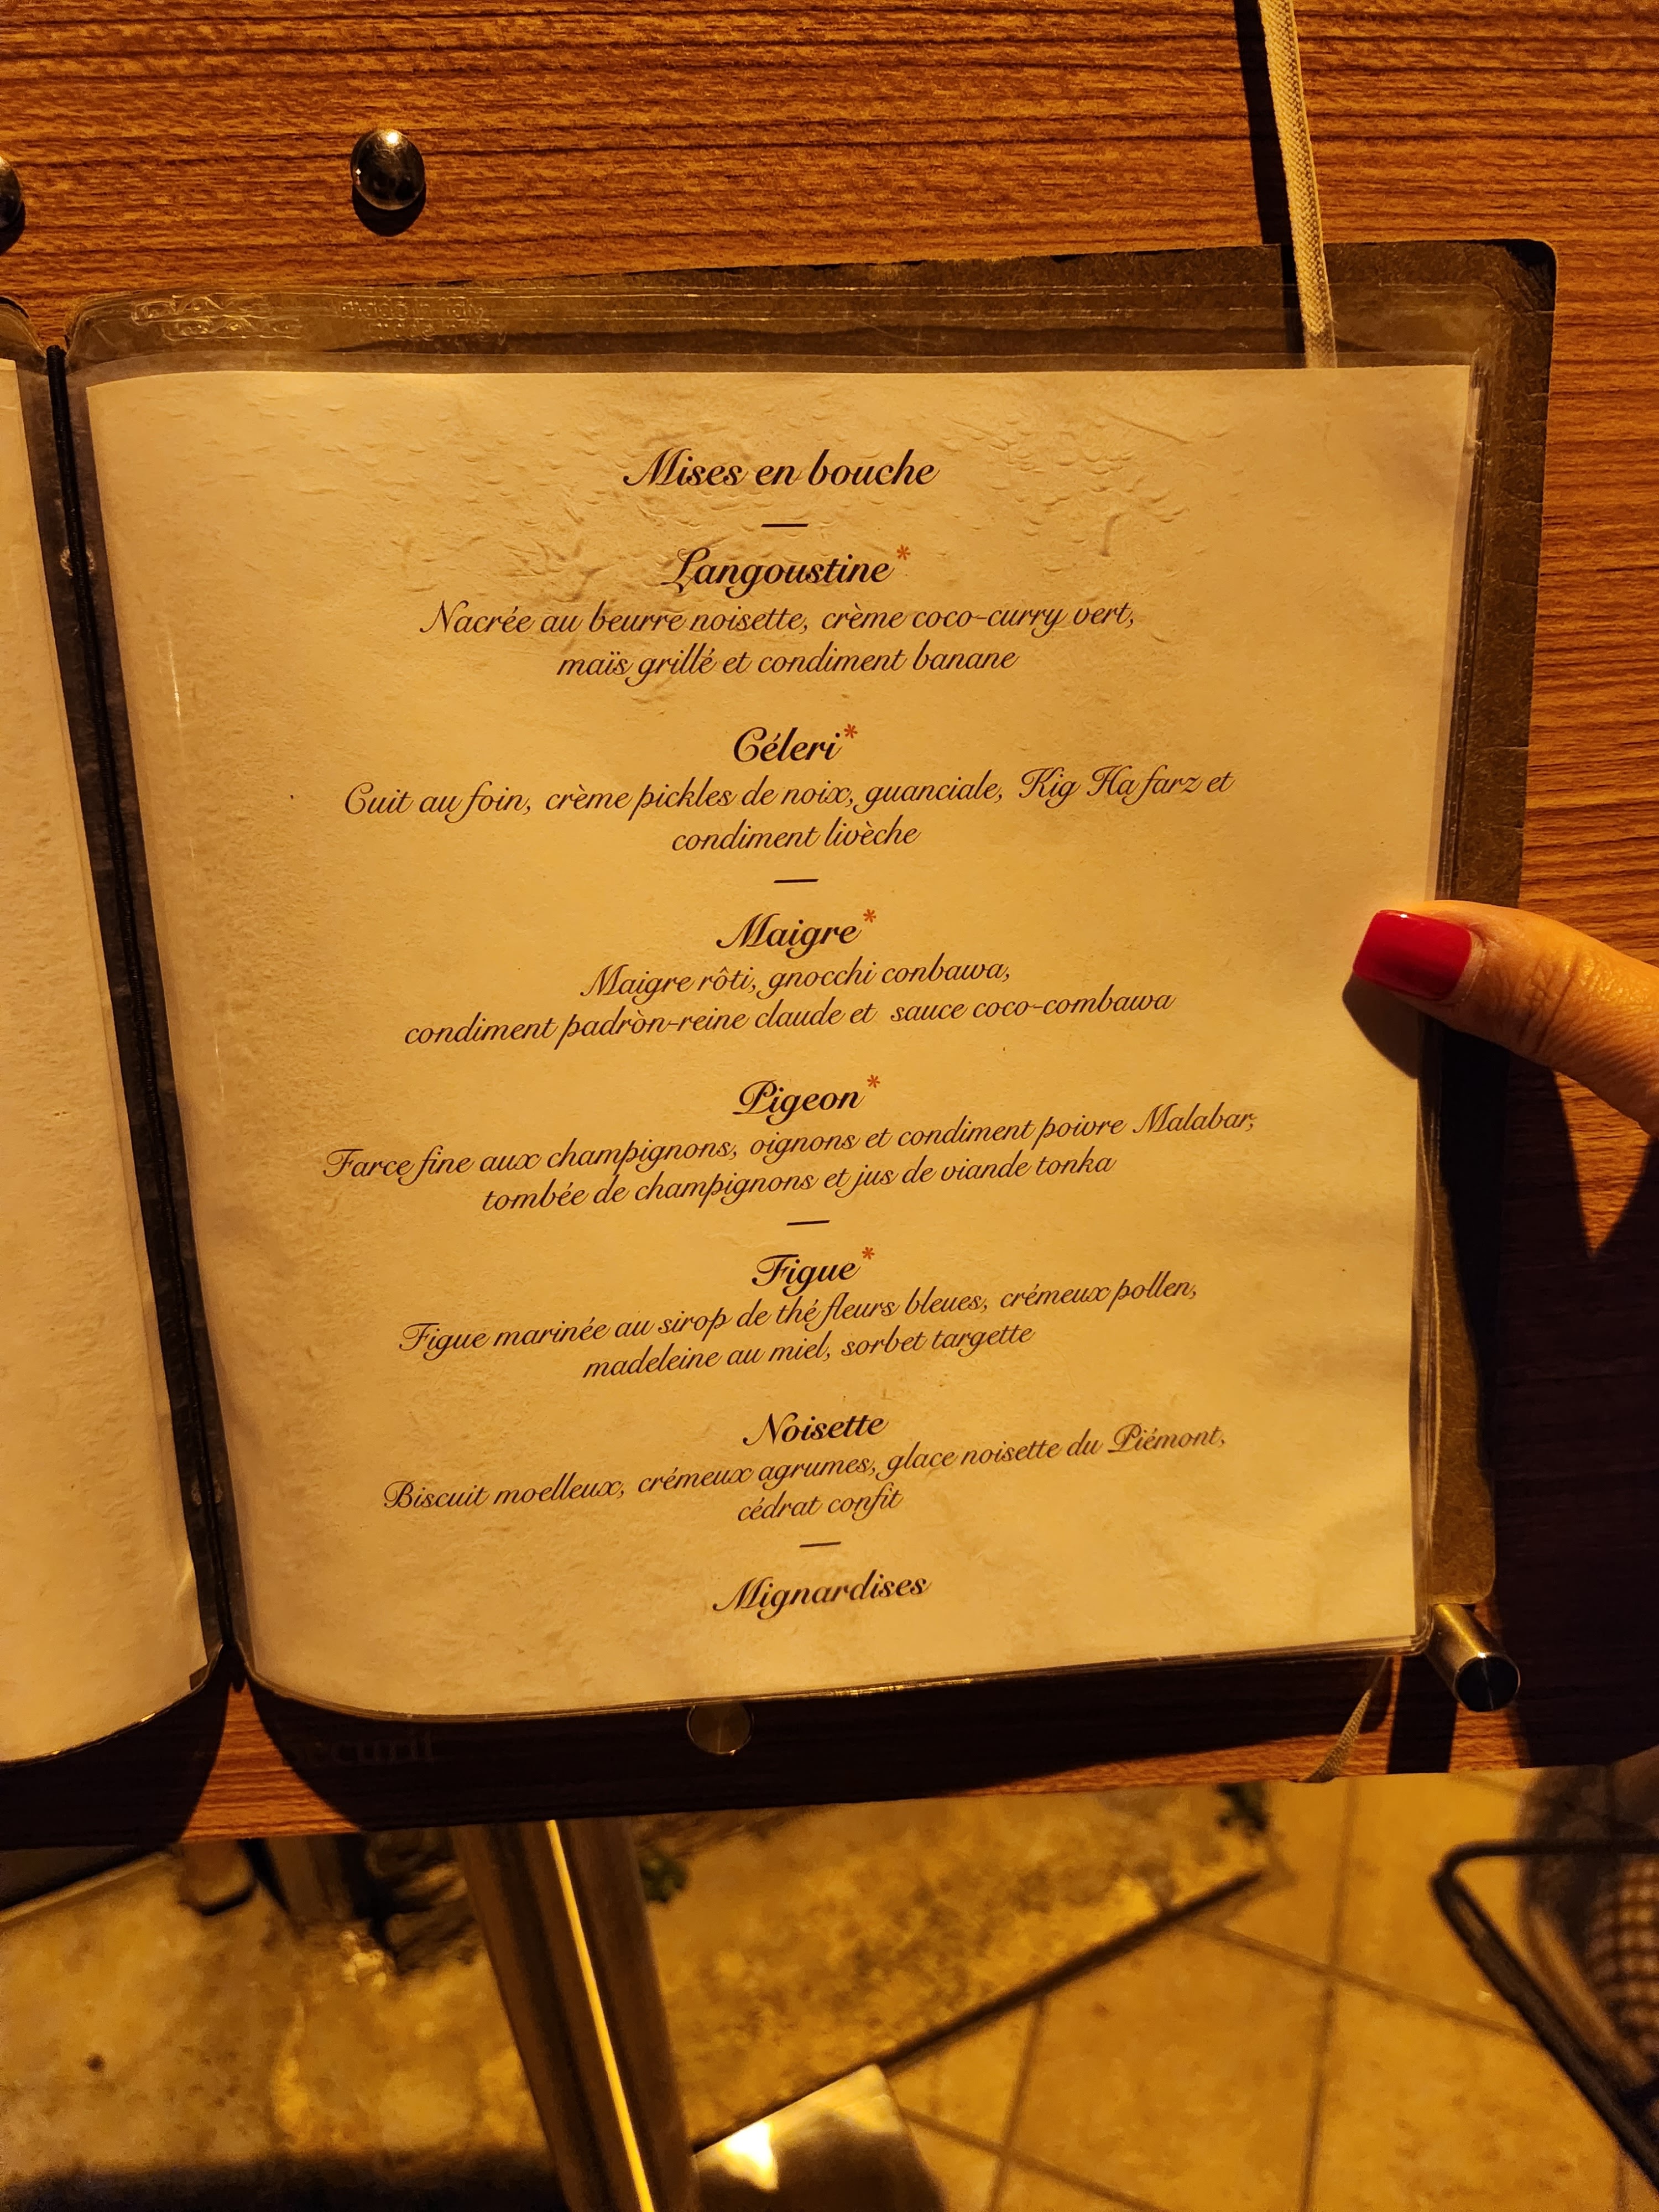 Mises en bouche
—
Langoustine*
Nacrée au beurre noisette, crème coco-curry vert,
maïs grillé et condiment banane
Céleri*
Cuit au foin, crème pickles de noix, guanciale, Kig Ha farz et
condiment livèche
—
Maigre*
Maigre rôti, gnocchi conbawa,
condiment padròn-reine claude et sauce coco-combawa
Pigeon*
Farce fine aux champignons, oignons et condiment poivre Malabar,
tombée de champignons et jus de viande tonka
—
Figue*
Figue marinée au sirop de thé fleurs bleues, crémeux pollen,
madeleine au miel, sorbet targette
Noisette
Biscuit moelleux, crémeux agrumes, glace noisette du Piémont,
cédrat confit
—
Mignardises